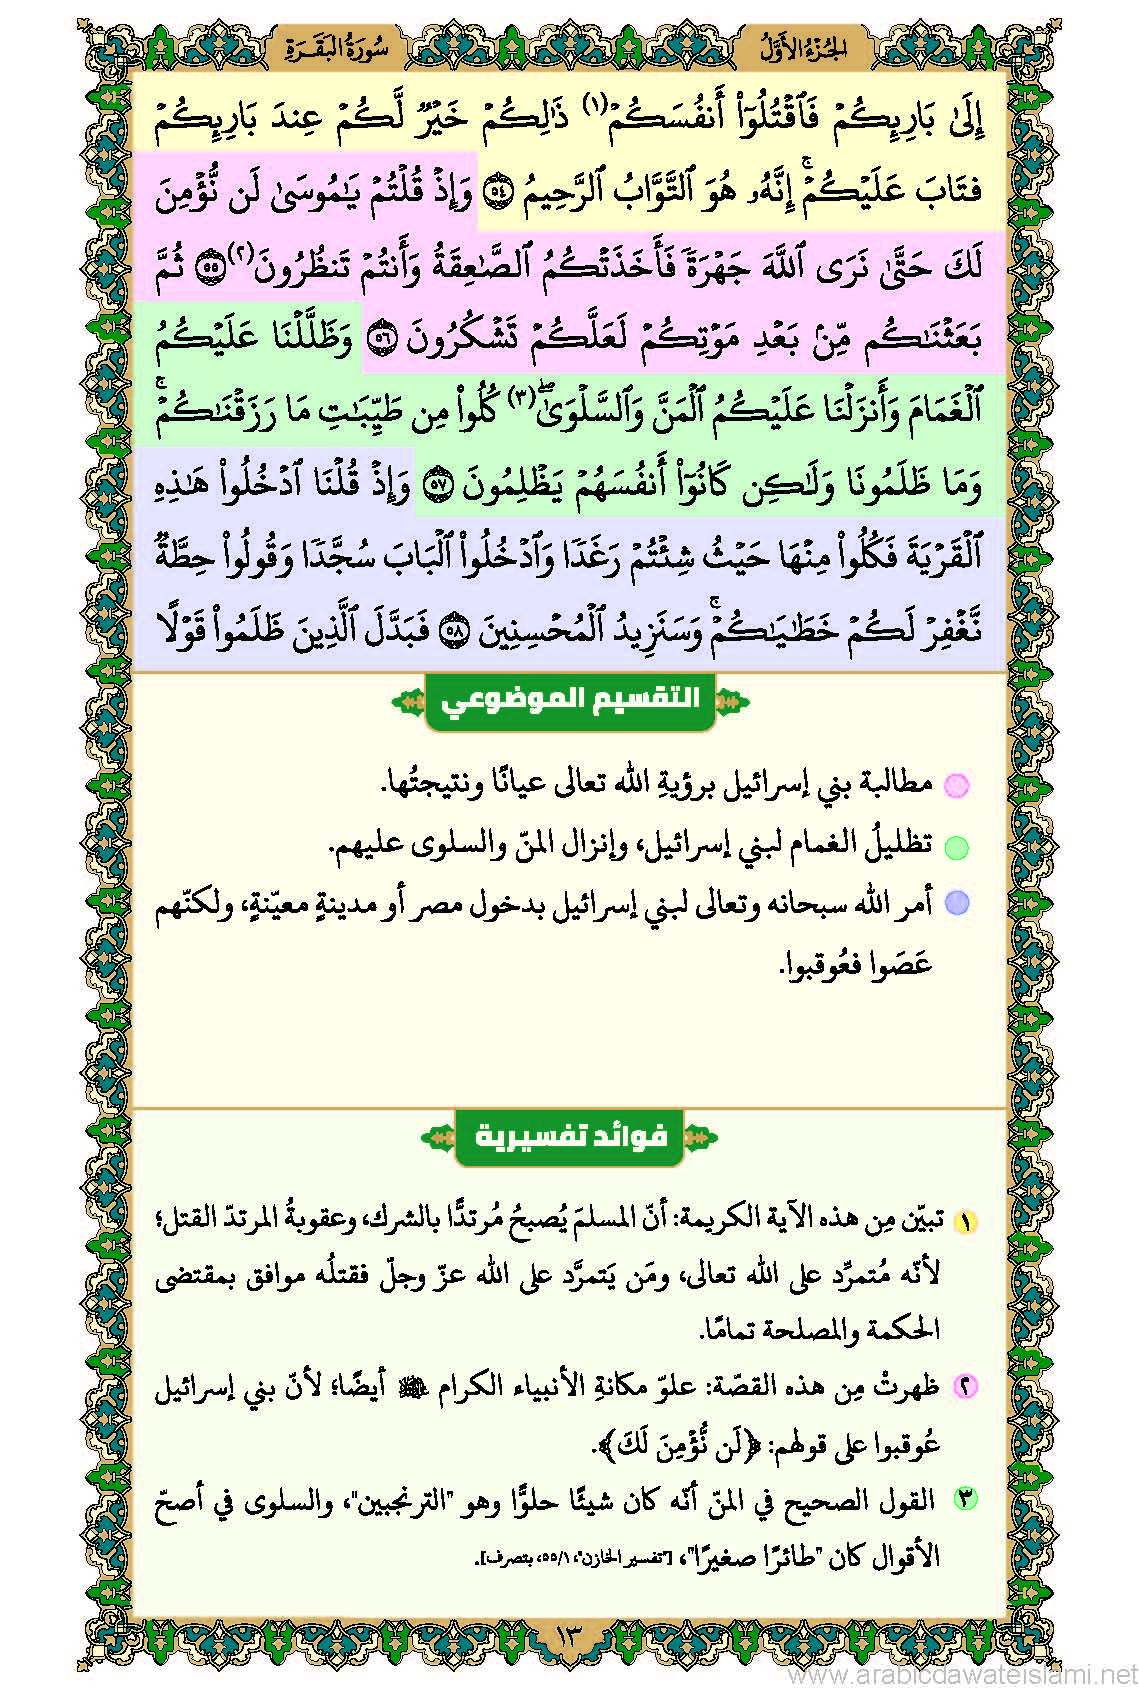 الجُزْءُ الأَوَّلُ
سُورَةُ البَقَرَةِ
إِلَىٰ بَارِئِكُمْ فَٱقْتُلُوٓا۟ أَنفُسَكُمْ(١) ذَٰلِكُمْ خَيْرٌ لَّكُمْ عِندَ بَارِئِكُمْ
فَتَابَ عَلَيْكُمْ ۚ إِنَّهُۥ هُوَ ٱلتَّوَّابُ ٱلرَّحِيمُ ٥٤ وَإِذْ قُلْتُمْ يَـٰمُوسَىٰ لَن نُّؤْمِنَ
لَكَ حَتَّىٰ نَرَى ٱللَّهَ جَهْرَةً فَأَخَذَتْكُمُ ٱلصَّـٰعِقَةُ وَأَنتُمْ تَنظُرُونَ(٢) ٥٥ ثُمَّ
بَعَثْنَـٰكُم مِّنۢ بَعْدِ مَوْتِكُمْ لَعَلَّكُمْ تَشْكُرُونَ ٥٦ وَظَلَّلْنَا عَلَيْكُمُ
ٱلْغَمَامَ وَأَنزَلْنَا عَلَيْكُمُ ٱلْمَنَّ وَٱلسَّلْوَىٰ ۖ(٣) كُلُوا۟ مِن طَيِّبَـٰتِ مَا رَزَقْنَـٰكُمْ ۚ
وَمَا ظَلَمُونَا وَلَـٰكِن كَانُوٓا۟ أَنفُسَهُمْ يَظْلِمُونَ ٥٧ وَإِذْ قُلْنَا ٱدْخُلُوا۟ هَـٰذِهِ
ٱلْقَرْيَةَ فَكُلُوا۟ مِنْهَا حَيْثُ شِئْتُمْ رَغَدًا وَٱدْخُلُوا۟ ٱلْبَابَ سُجَّدًا وَقُولُوا۟ حِطَّةٌ
نَّغْفِرْ لَكُمْ خَطَـٰيَـٰكُمْ ۚ وَسَنَزِيدُ ٱلْمُحْسِنِينَ ٥٨ فَبَدَّلَ ٱلَّذِينَ ظَلَمُوا۟ قَوْلًا
التقسيم الموضوعي
مطالبة بني إسرائيل برؤيةِ الله تعالى عيانًا ونتيجتُها.
تظليلُ الغمام لبني إسرائيل، وإنزال المنّ والسلوى عليهم.
أمر الله سبحانه وتعالى لبني إسرائيل بدخول مصر أو مدينةٍ معيّنةٍ، ولكنّهم
عَصَوا فعُوقبوا.
فوائد تفسيرية
١ تبيّن مِن هذه الآية الكريمة: أنّ المسلمَ يُصبحُ مُرتدًّا بالشرك، وعقوبةُ المرتدّ القتل؛
لأنّه مُتمرِّد على الله تعالى، ومَن يَتمرَّد على الله عزّ وجلّ فقتلُه موافق بمقتضى
الحكمة والمصلحة تمامًا.
٢ ظهرتْ مِن هذه القصّة: علوّ مكانةِ الأنبياء الكرام أيضًا؛ لأنّ بني إسرائيل
عُوقبوا على قولهم: ﴿لَن نُّؤْمِنَ لَكَ﴾.
٣ القول الصحيح في المنّ أنّه كان شيئًا حلوًا وهو "الترنجبين"، والسلوى في أصحّ
الأقوال كان "طائرًا صغيرًا"، ["تفسير الخازن"، ٥٥/١، بتصرف].
١٣
www.arabicdawateislami.net